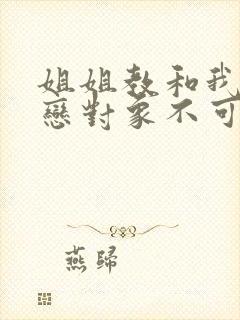 姐姐教和我
戀對象不可
燕歸